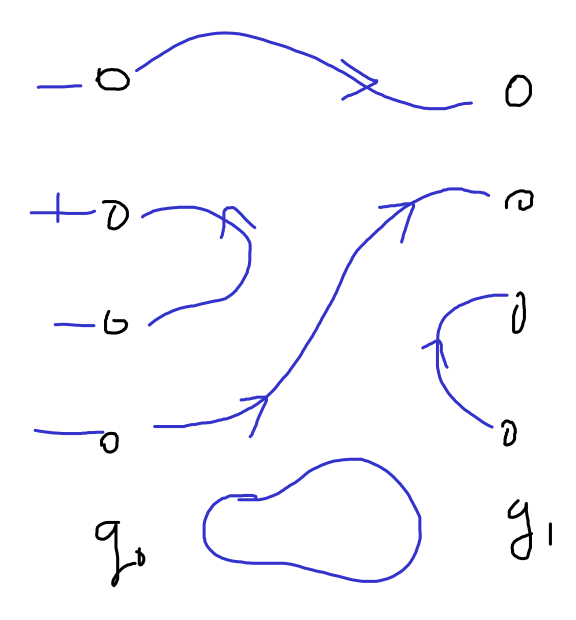 - 0 0
+ 0 0
- 0 0
- 0 0
g₀ g₁